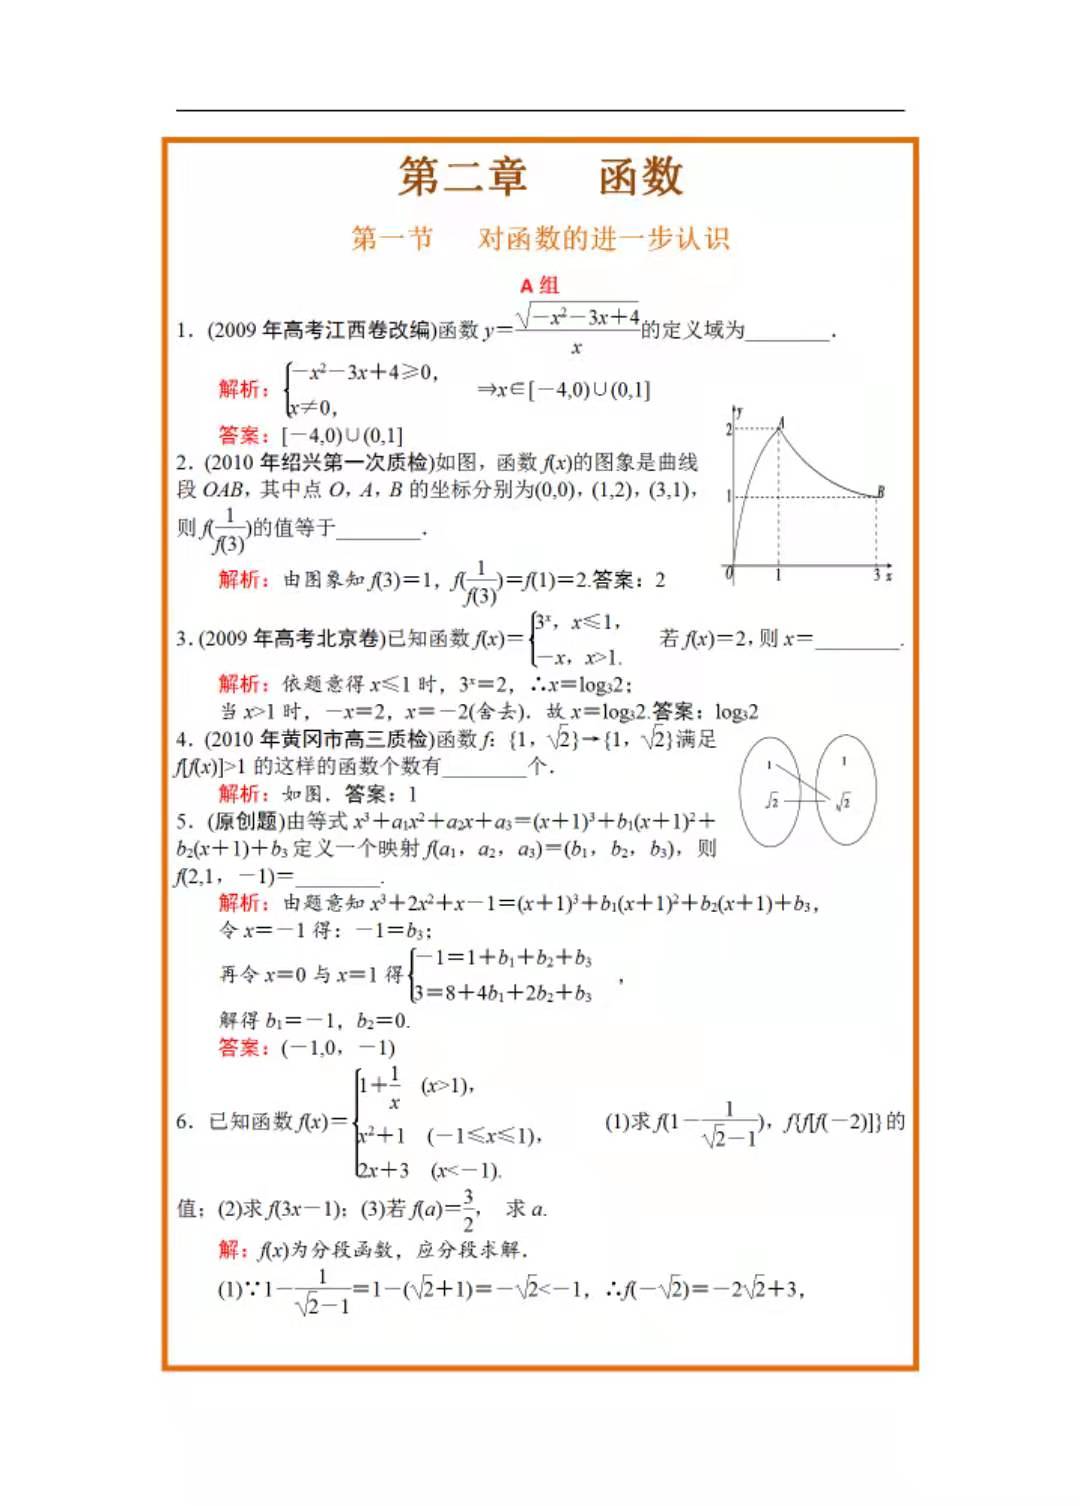 第二章 函数
第一节 对函数的进一步认识
A 组
1．(2009 年高考江西卷改编)函数 y＝√(－x²－3x＋4)/x 的定义域为________．
解析：{－x²－3x＋4≥0， x≠0， ⇒x∈[－4,0)∪(0,1]
答案：[－4,0)∪(0,1]
2．(2010 年绍兴第一次质检)如图，函数 f(x)的图象是曲线
段 OAB，其中点 O，A，B 的坐标分别为(0,0)，(1,2)，(3,1)，
则 f(1/f(3))的值等于________．
y
2
A
1
B
O 1 3 x
解析：由图象知 f(3)＝1，f(1/f(3))＝f(1)＝2.答案：2
3．(2009 年高考北京卷)已知函数 f(x)＝{3ˣ，x≤1， －x，x>1. 若 f(x)＝2，则 x＝________.
解析：依题意得 x≤1 时，3ˣ＝2，∴x＝log₃2；
当 x>1 时，－x＝2，x＝－2(舍去)．故 x＝log₃2.答案：log₃2
4．(2010 年黄冈市高三质检)函数 f：{1，√2}→{1，√2}满足
f[f(x)]>1 的这样的函数个数有________个．
1 1
√2 √2
解析：如图．答案：1
5．(原创题)由等式 x³＋a₁x²＋a₂x＋a₃＝(x＋1)³＋b₁(x＋1)²＋
b₂(x＋1)＋b₃ 定义一个映射 f(a₁，a₂，a₃)＝(b₁，b₂，b₃)，则
f(2,1，－1)＝________.
解析：由题意知 x³＋2x²＋x－1＝(x＋1)³＋b₁(x＋1)²＋b₂(x＋1)＋b₃，
令 x＝－1 得：－1＝b₃；
再令 x＝0 与 x＝1 得{－1＝1＋b₁＋b₂＋b₃ 3＝8＋4b₁＋2b₂＋b₃ ，
解得 b₁＝－1，b₂＝0.
答案：(－1,0，－1)
6．已知函数 f(x)＝{1＋1/x (x>1)， x²＋1 (－1≤x≤1)， 2x＋3 (x<－1). (1)求 f(1－1/(√2－1))，f{f[f(－2)]}的
值；(2)求 f(3x－1)；(3)若 f(a)＝3/2， 求 a.
解：f(x)为分段函数，应分段求解．
(1)∵1－1/(√2－1)＝1－(√2＋1)＝－√2<－1，∴f(－√2)＝－2√2＋3，